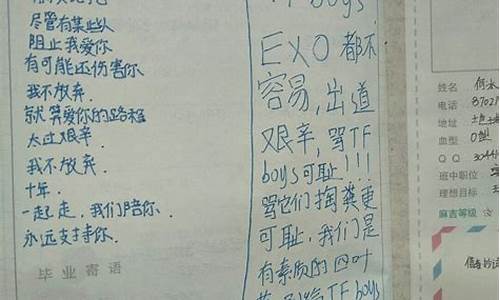 尽管有某些人
阻止我爱你
有可能还伤害你
我不放弃.
就算爱你的路程
太过艰辛.
我不放弃.
十年.
一起走,我们陪你.
永远支持你.
毕业寄语
boys
EXO都不
容易,出道
艰辛,骂TF
boys可耻!!!
骂它们掏粪更
可耻,我们是
有素质的四叶
TF boys
姓名 何
电话 8702
地址
血型 O型
QQ 3044
班中职位
理想目标
麻吉等级